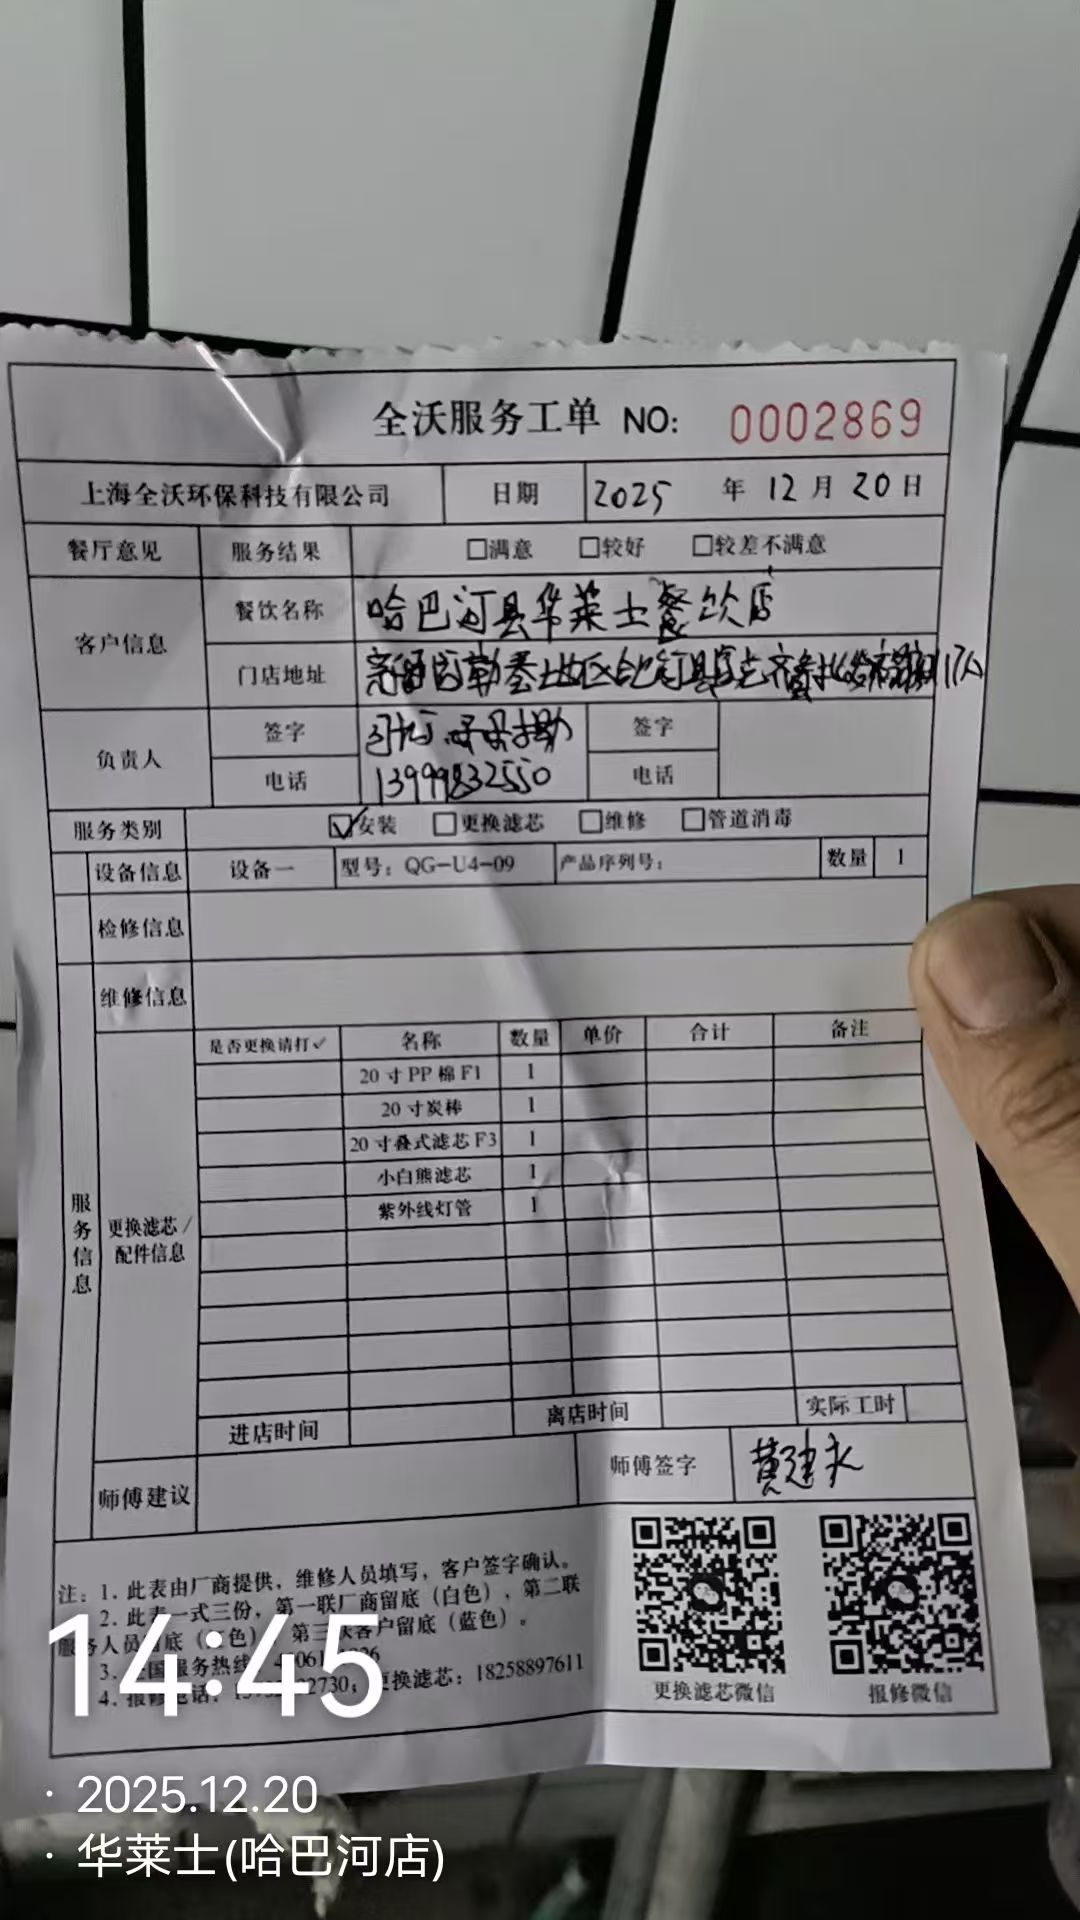 全沃服务工单 NO: 0002869
上海全沃环保科技有限公司 日期 2025 年 12 月 20 日
餐厅意见 服务结果 □满意 □较好 □较差不满意
客户信息 餐饮名称 哈巴河县华莱士餐饮店
门店地址
负责人 签字 签字
电话 13999832550 电话
服务类别 ☑安装 □更换滤芯 □维修 □管道消毒
设备信息 设备一 型号：QG-U4-09 产品序列号： 数量 1
检修信息
维修信息
是否更换请打✓ 名称 数量 单价 合计 备注
20寸PP棉F1 1
20寸炭棒 1
20寸叠式滤芯F3 1
小白熊滤芯 1
紫外线灯管 1
服务信息
更换滤芯/
配件信息
进店时间 离店时间 实际工时
师傅建议 师傅签字 黄建永
注：1. 此表由厂商提供，维修人员填写，客户签字确认。
2. 此表一式三份，第一联厂商留底（白色），第二联
服务人员留底（色），第三联客户留底（蓝色）。
3. 全国服务热线
4. 报修电话： 更换滤芯：18258897611
更换滤芯微信 报修微信
14:45
· 2025.12.20
· 华莱士(哈巴河店)